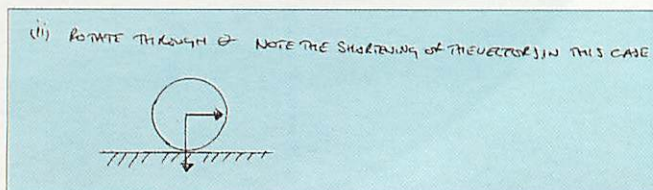 (ii) ROTATE THROUGH θ NOTE THE SHORTENING OF THE VECTORS IN THIS CASE